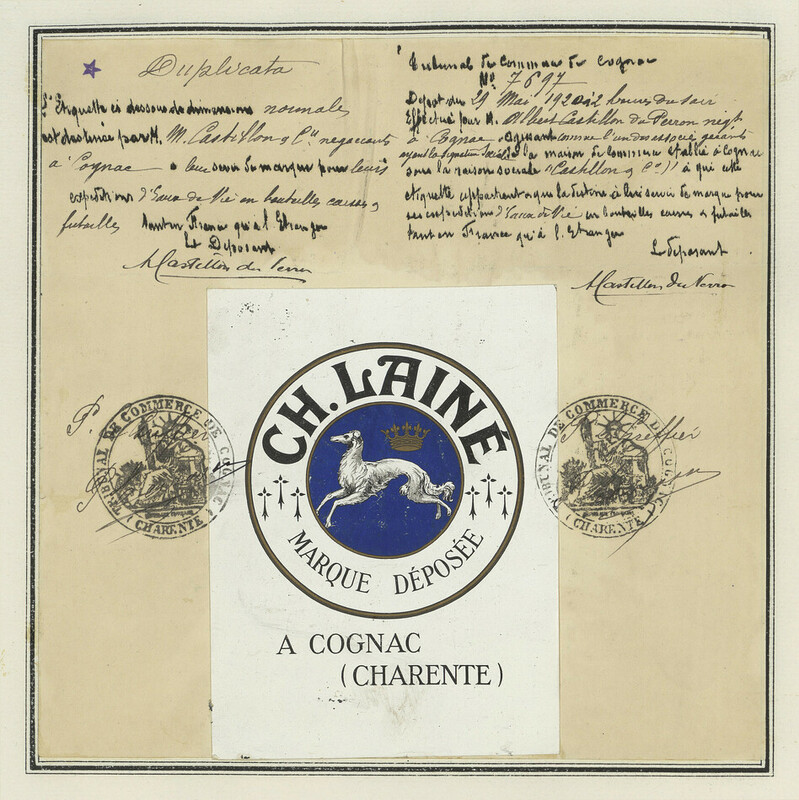 Duplicata
L'Etiquette ci dessous de dimensions normales
est destinée par M. M. Castillon & Cie negociants
à Cognac a leur servir de marque pour leurs
expeditions d'Eaux de Vie en bouteilles caisses &
futailles tant en France qu'a l'Etranger
Le Deposant
A Castillon du Perron
Tribunal de Commerce de Cognac
No 7697
Depot du 29 Mai 1920 à 2 heures du soir
Effectué par M. Albert Castillon du Perron negt
à Cognac agissant comme l'un des associés gerants
ayant la signature sociale de la maison de Commerce etablie à Cognac
sous la raison sociale "Castillon & Co" à qui cette
etiquette appartient & que la destine à lui servir de marque pour
ses expeditions d'Eaux de Vie en bouteilles caisses & futailles
tant en France qu'à l'Etranger
Le deposant
A Castillon du Perron
CH. LAINÉ
MARQUE DÉPOSÉE
A COGNAC
(CHARENTE)
TRIBUNAL DE COMMERCE DE COGNAC
(CHARENTE)
P. Greffier
TRIBUNAL DE COMMERCE DE COGNAC
(CHARENTE)
Greffier